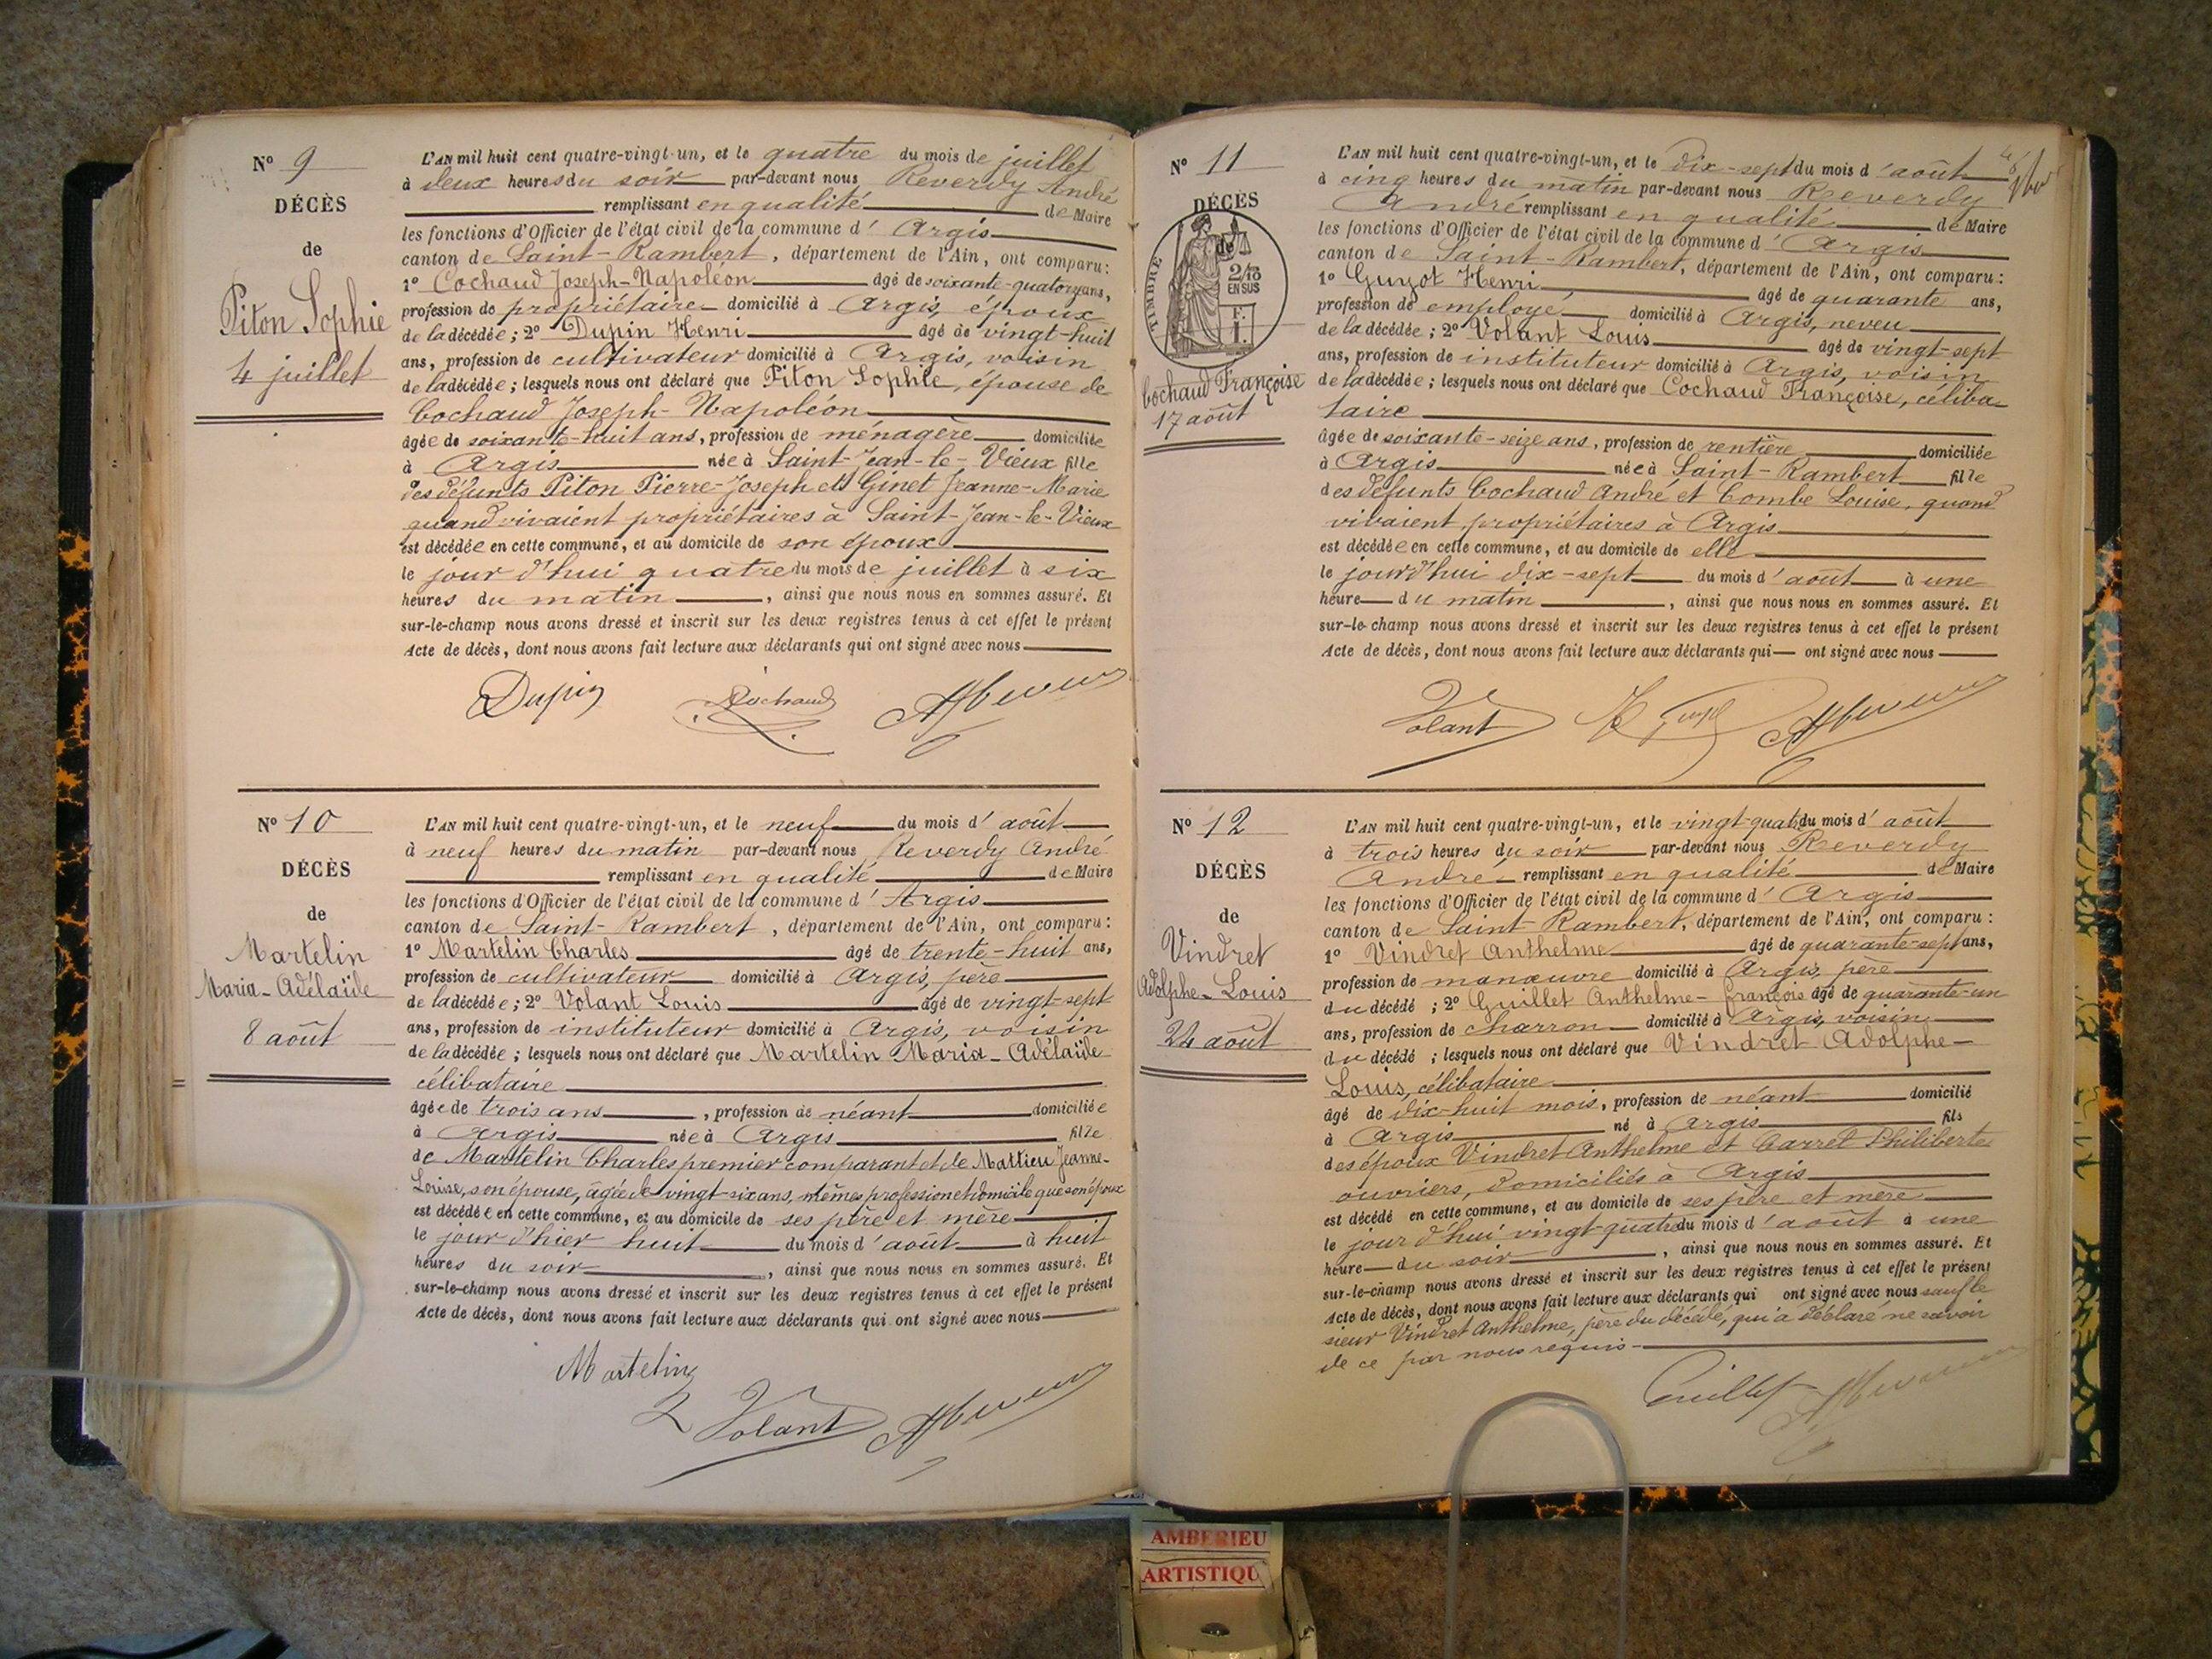 N° 9
DÉCÈS
de
Piton Sophie
4 juillet
L'AN mil huit cent quatre-vingt-un, et le quatre du mois de juillet
à deux heures du soir par-devant nous Reverdy André
remplissant en qualité de Maire
les fonctions d'Officier de l'état civil de la commune d' Argis
canton de Saint-Rambert, département de l'Ain, ont comparu:
1° Cochaud Joseph-Napoléon âgé de soixante-quatorze ans,
profession de propriétaire domicilié à Argis, époux
de la décédée; 2° Dupin Henri âgé de vingt-huit
ans, profession de cultivateur domicilié à Argis, voisin
de la décédée; lesquels nous ont déclaré que Piton Sophie, épouse de
Cochaud Joseph-Napoléon
âgée de soixante-huit ans, profession de ménagère domiciliée
à Argis née à Saint-Jean-le-Vieux fille
des défunts Piton Pierre-Joseph et Ginet Jeanne-Marie
quand vivaient propriétaires à Saint-Jean-le-Vieux
est décédée en cette commune, et au domicile de son époux
le jour d'hui quatre du mois de juillet à six
heures du matin, ainsi que nous nous en sommes assuré. Et
sur-le-champ nous avons dressé et inscrit sur les deux registres tenus à cet effet le présent
Acte de décès, dont nous avons fait lecture aux déclarants qui ont signé avec nous
Dupin Cochaud
N° 10
DÉCÈS
de
Martelin
Maria-Adélaïde
8 août
L'AN mil huit cent quatre-vingt-un, et le neuf du mois d' août
à neuf heures du matin par-devant nous Reverdy André
remplissant en qualité de Maire
les fonctions d'Officier de l'état civil de la commune d' Argis
canton de Saint-Rambert, département de l'Ain, ont comparu:
1° Martelin Charles âgé de trente-huit ans,
profession de cultivateur domicilié à Argis, père
de la décédée; 2° Volant Louis âgé de vingt-sept
ans, profession de instituteur domicilié à Argis, voisin
de la décédée; lesquels nous ont déclaré que Martelin Maria-Adélaïde
célibataire
âgée de trois ans, profession de néant domiciliée
à Argis née à Argis fille
de Martelin Charles premier comparant et de Mattieu Jeanne-
Louise, son épouse, âgée de vingt-six ans, mêmes profession et domicile que son époux
est décédée en cette commune, et au domicile de ses père et mère
le jour d'hier huit du mois d' août à huit
heures du soir, ainsi que nous nous en sommes assuré. Et
sur-le-champ nous avons dressé et inscrit sur les deux registres tenus à cet effet le présent
Acte de décès, dont nous avons fait lecture aux déclarants qui ont signé avec nous
Martelin
L Volant
N° 11
DÉCÈS
de
TIMBRE
2/10
EN SUS
F.
I.
Cochaud Françoise
17 août
L'AN mil huit cent quatre-vingt-un, et le dix-sept du mois d' août
à cinq heures du matin par-devant nous Reverdy
André remplissant en qualité de Maire
les fonctions d'Officier de l'état civil de la commune d' Argis
canton de Saint-Rambert, département de l'Ain, ont comparu:
1° Guyot Henri âgé de quarante ans,
profession de employé domicilié à Argis, neveu
de la décédée; 2° Volant Louis âgé de vingt-sept
ans, profession de instituteur domicilié à Argis, voisin
de la décédée; lesquels nous ont déclaré que Cochaud Françoise, céliba-
taire
âgée de soixante-seize ans, profession de rentière domiciliée
à Argis née à Saint-Rambert fille
des défunts Cochaud André et Combe Louise, quand
vivaient propriétaires à Argis
est décédée en cette commune, et au domicile de elle
le jourd'hui dix-sept du mois d' août à une
heure du matin, ainsi que nous nous en sommes assuré. Et
sur-le-champ nous avons dressé et inscrit sur les deux registres tenus à cet effet le présent
Acte de décès, dont nous avons fait lecture aux déclarants qui ont signé avec nous
Volant H Guyot
N° 12
DÉCÈS
de
Vindret
Adolphe-Louis
24 août
L'AN mil huit cent quatre-vingt-un, et le vingt-quatre du mois d' août
à trois heures du soir par-devant nous Reverdy
André remplissant en qualité de Maire
les fonctions d'Officier de l'état civil de la commune d' Argis
canton de Saint-Rambert, département de l'Ain, ont comparu:
1° Vindret Anthelme âgé de quarante-sept ans,
profession de manœuvre domicilié à Argis, père
du décédé; 2° Guillet Anthelme-François âgé de quarante-un
ans, profession de charron domicilié à Argis, voisin
du décédé; lesquels nous ont déclaré que Vindret Adolphe-
Louis, célibataire
âgé de dix-huit mois, profession de néant domicilié
à Argis né à Argis fils
des époux Vindret Anthelme et Carret Philiberte
ouvriers, domiciliés à Argis
est décédé en cette commune, et au domicile de ses père et mère
le jour d'hui vingt-quatre du mois d' août à une
heure du soir, ainsi que nous nous en sommes assuré. Et
sur-le-champ nous avons dressé et inscrit sur les deux registres tenus à cet effet le présent
Acte de décès, dont nous avons fait lecture aux déclarants qui ont signé avec nous sauf le
sieur Vindret Anthelme, père du décédé, qui a déclaré ne savoir
de ce par nous requis
Guillet
AMBERIEU
ARTISTIQU